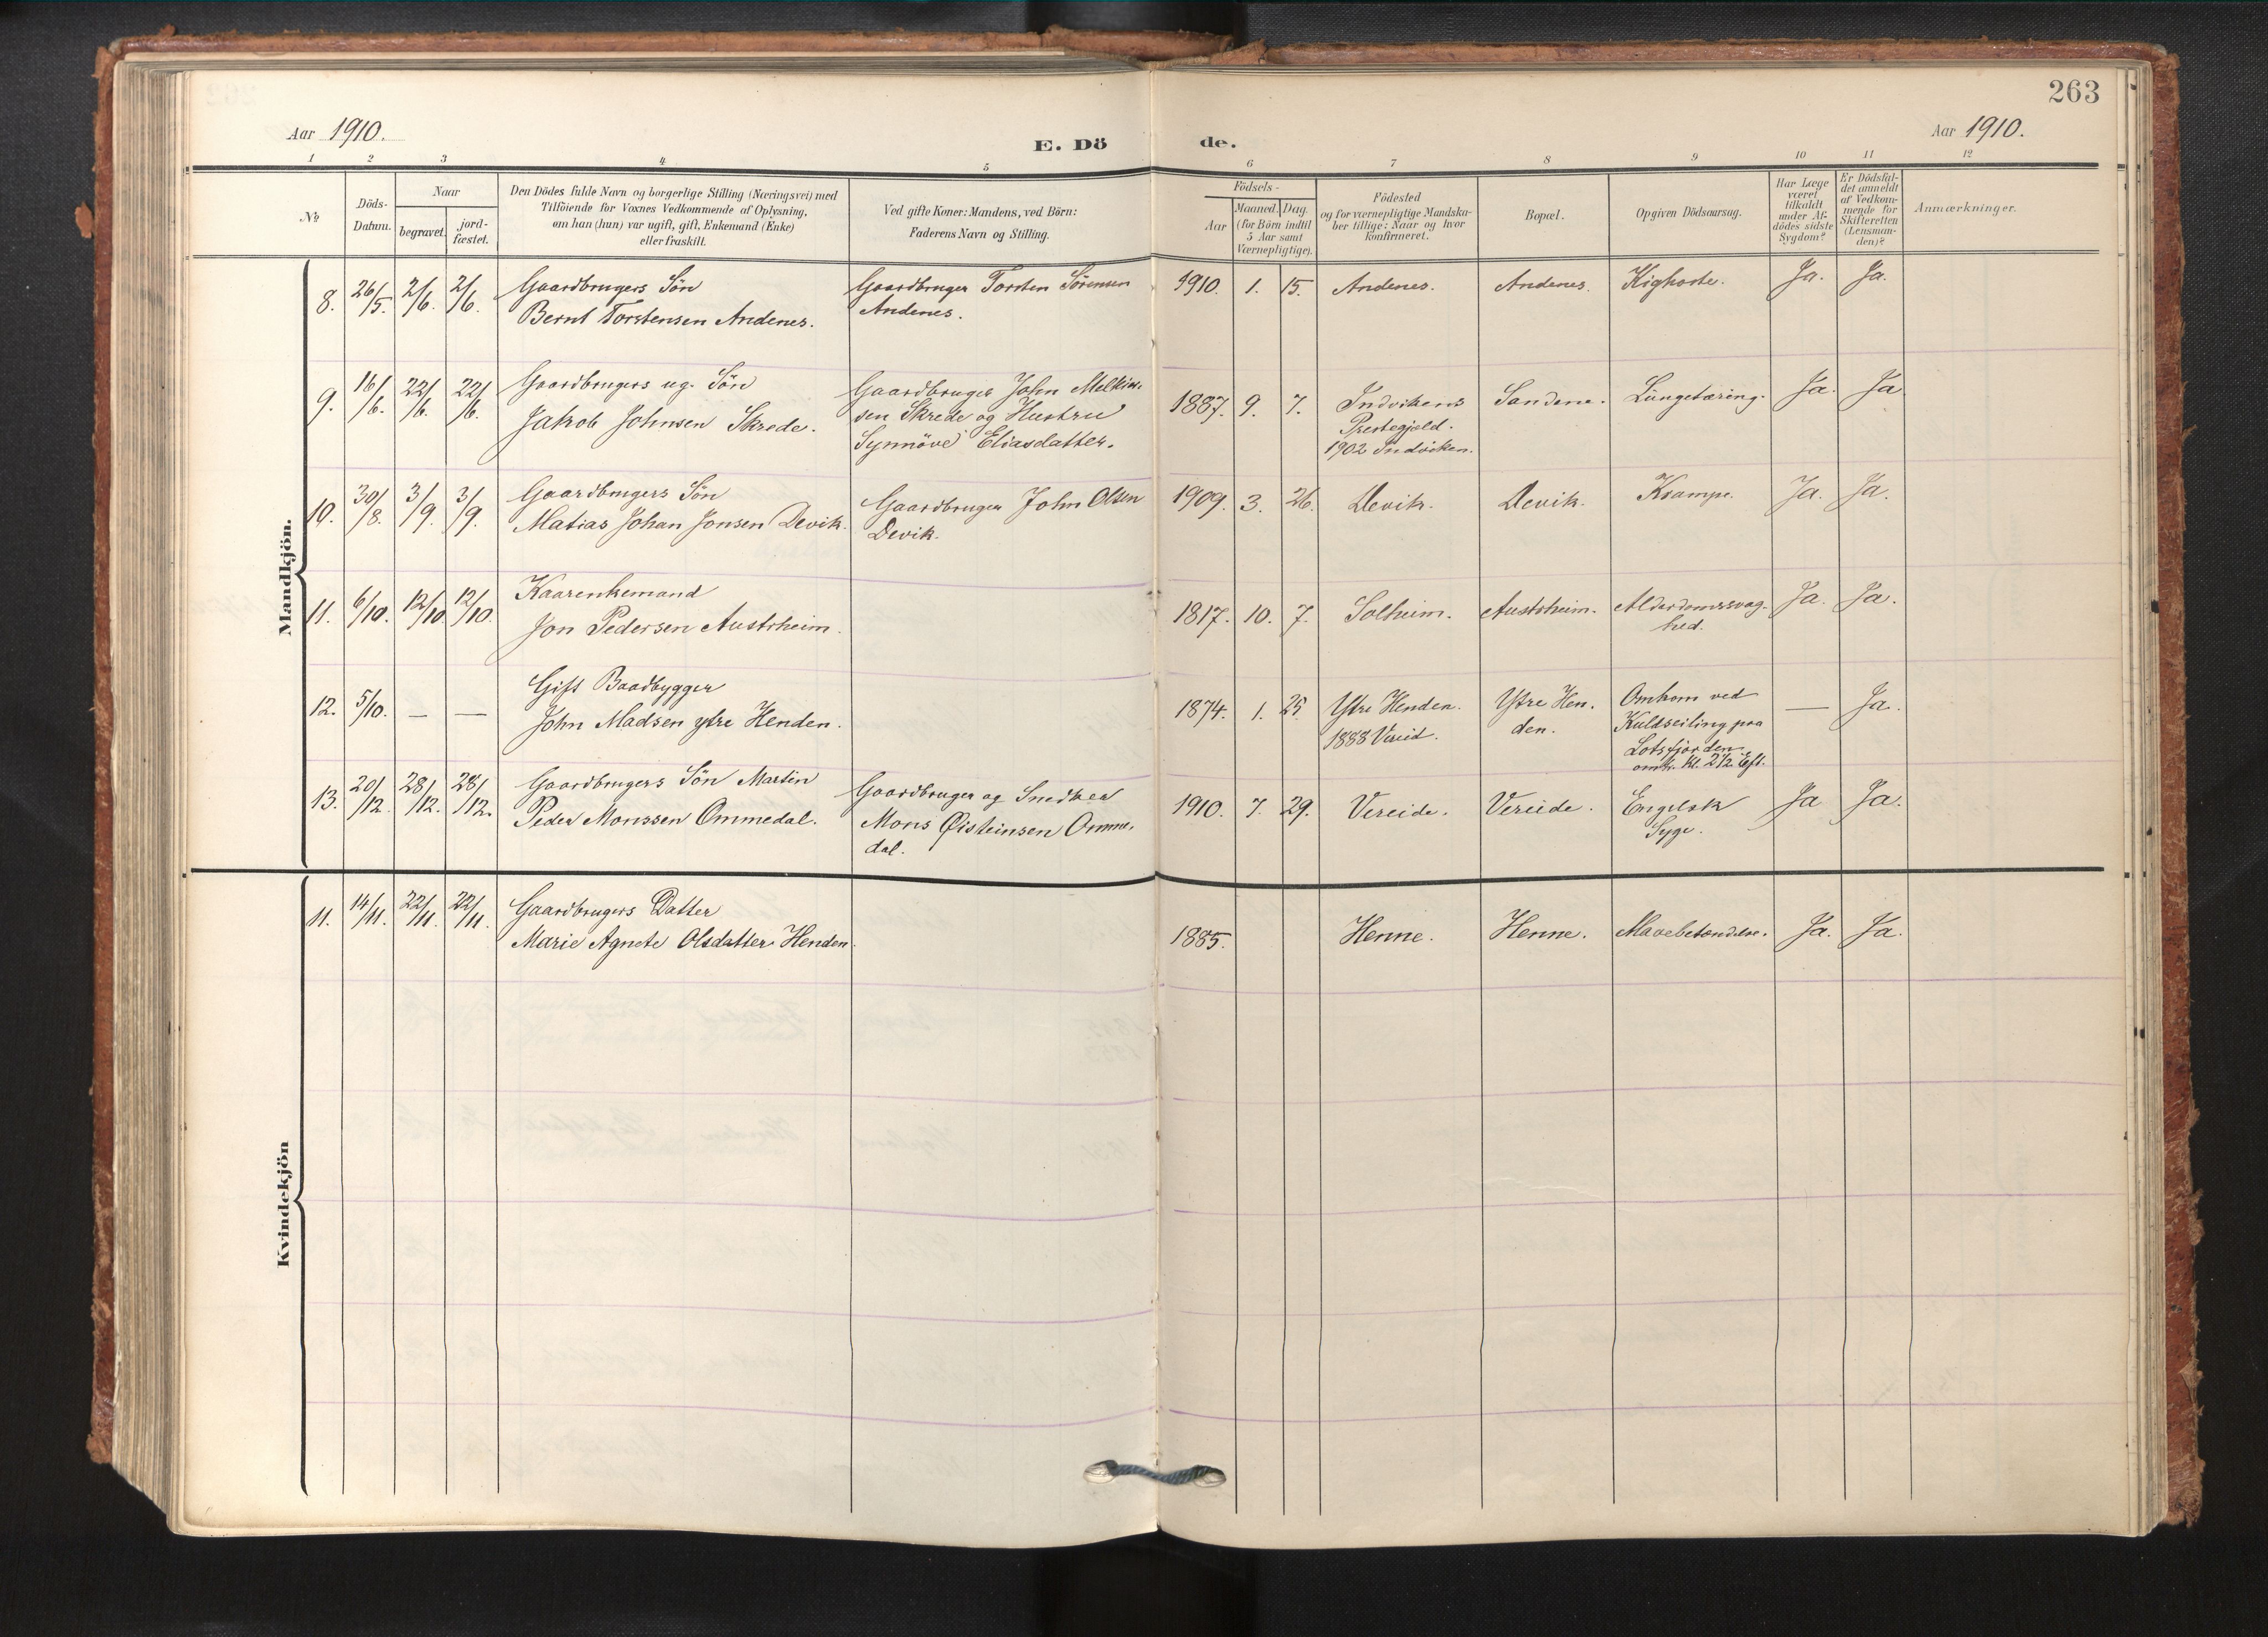 263
Aar 1910.
E. Dö de.
Aar 1910.
1 2 3 4 5 6 7 8 9 10 11 12
№
Döds-
Datum.
Naar
begravet.
jord-
fæstet.
Den Dödes fulde Navn og borgerlige Stilling (Næringsvei) med
Tilföiende for Voxnes Vedkommende af Oplysning,
om han (hun) var ugift, gift, Enkemand (Enke)
eller fraskilt.
Ved gifte Koner: Mandens, ved Börn:
Faderens Navn og Stilling.
Födsels-
Aar
Maaned. Dag.
(for Börn indtil
5 Aar samt
Værnepligtige).
Födested
og for værnepligtige Mandska-
ber tillige: Naar og hvor
konfirmeret.
Bopæl.
Opgiven Dödsaarsag.
Har Læge
været
tilkaldt
under Af-
dödes sidste
Sygdom?
Er Dödsfal-
det anmeldt
af Vedkom-
mende for
Skifteretten
(Lensman-
den)?
Anmærkninger.
Mandkjön.
8. 26/5. 2/6. 2/6. Gaardbrugers Sön
Bernt Torstensen Andenes.
Gaardbruger Torsten Sörensen
Andenes.
1910. 1. 15. Andenes. Andenes. Kighoste. Ja. Ja.
9. 16/6. 22/6. 22/6. Gaardbrugers ug. Sön
Jakob Johnsen Skrede.
Gaardbruger John Melkin-
sen Skrede og Hustru
Synnöve Eliasdatter.
1887. 9. 7. Indvikens
Prestegjeld.
1902 Indviken.
Sandene. Lungetæring. Ja. Ja
10. 30/8. 3/9. 3/9. Gaardbrugers Sön
Matias Johan Jonsen Devik.
Gaardbruger John Olsen
Devik.
1909. 3. 26. Devik. Devik. Krampe. Ja. Ja.
11. 6/10. 12/10 12/10. Kaarenkemand
Jon Pedersen Austrheim.
1817. 10. 7. Solheim. Austrheim. Alderdomssvag-
hed.
Ja. Ja.
12. 5/10. — — Gift Baadbygger
John Madsen ytre Henden.
1874. 1. 25. Ytre Henden.
1888 Vereid.
Ytre Hen-
den.
Omkom ved
Kuldseiling paa
Lotsfjorden
omtr. kl. 2 1/2 Eft.
— Ja.
13. 20/12. 28/12. 28/12. Gaardbrugers Sön Martin
Peder Monssen Ommedal.
Gaardbruger og Snedker
Mons Øisteinsen Omme-
dal.
1910. 7. 29. Vereide. Vereide. Engelsk
Syge.
Ja Ja.
Kvindekjön
11. 14/11. 22/11. 22/11. Gaardbrugers Datter
Marie Agnete Olsdatter Henden.
1885. Henne. Henne. Mavebetændelse. Ja. Ja.